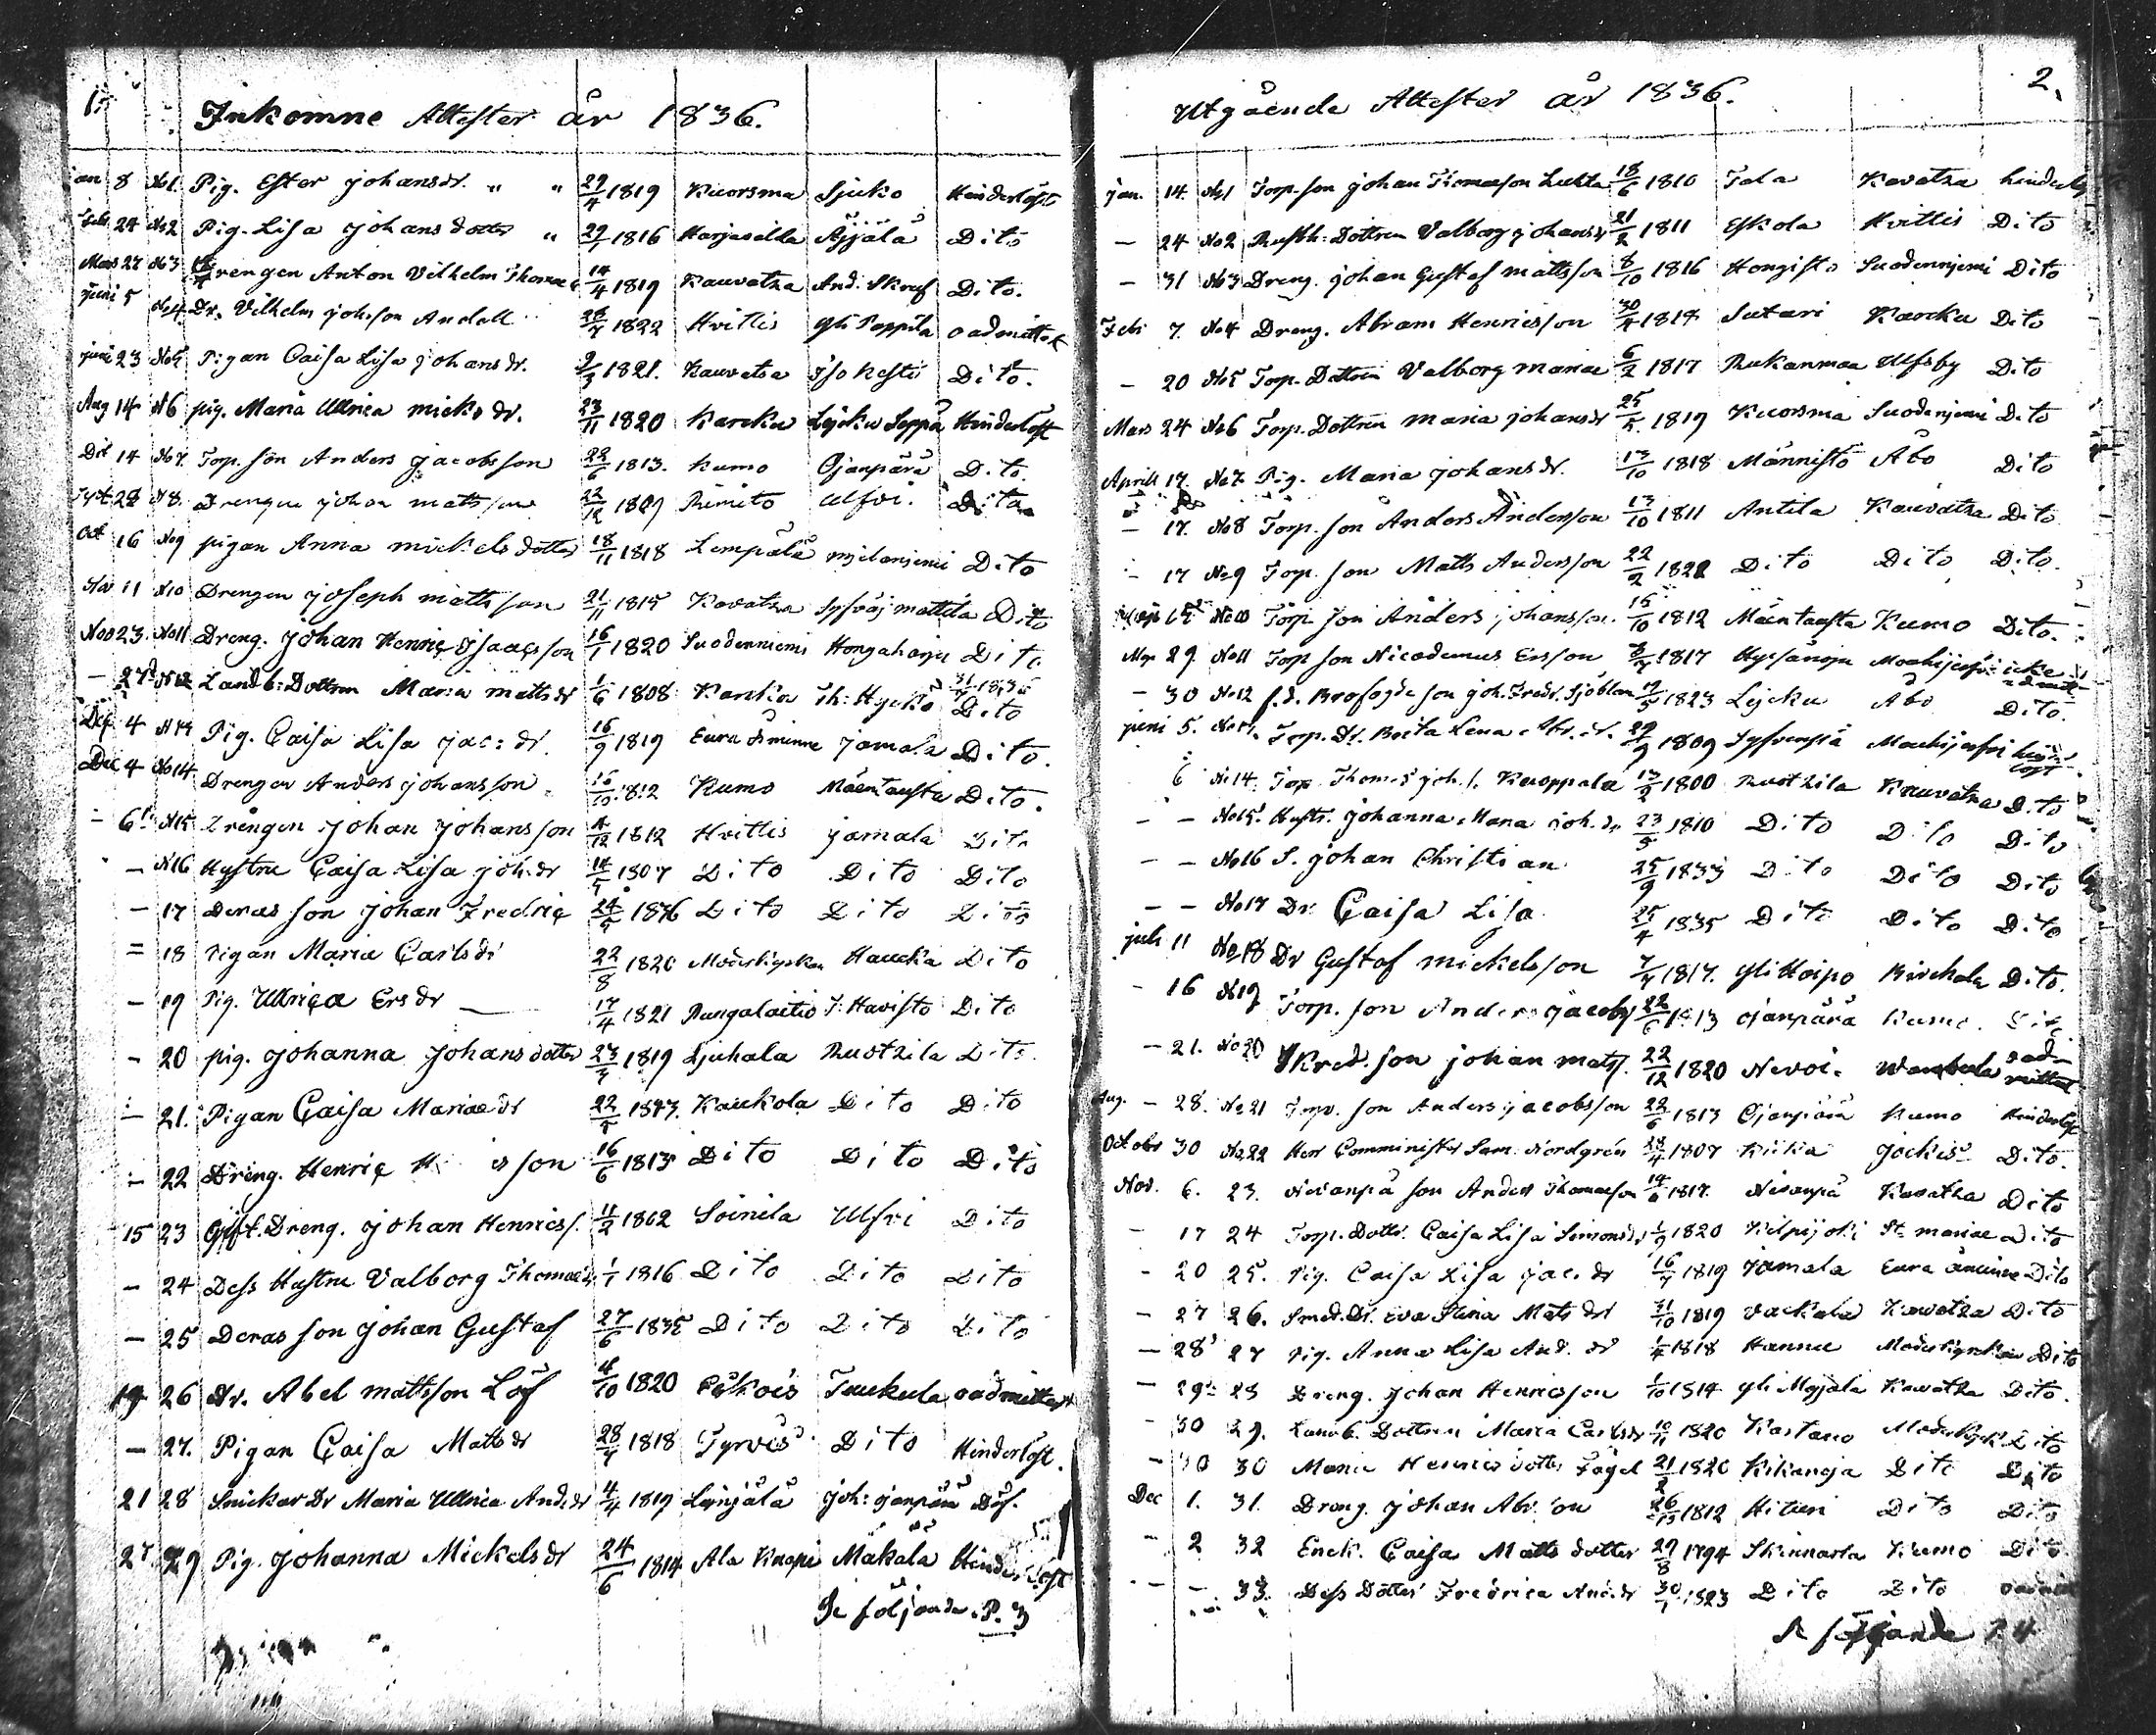 1.
Inkomne Attester år 1836.
jan 8 No1 Pig. Ester Johansdr. " " 29/4 1819 Kuorsma Sjuko Hinderlöst
Feb. 24 No2 Pig. Lisa Johans dotter " 29/1 1816 Harjasilda Äjjälä Dito
Mars 27 No3 Drengen Anton Vilhelm Thomae 14/4 1819 Kauvatza And. Skruf Dito.
juni 5 No4 Dr. Vilhelm Johsson Andell 28/7 1822 Hvittis Yli Pappila oadmitter
juni 23 No5 Pigan Caisa Lisa Johansdr. 9/3 1821. Kauvatsa Iso Kesti Dito.
Aug 14 N6 pig. Maria Ullrica Micksdr. 23/11 1820 Karcku Lejcku Seppä Hinderlöst
Dit 14 No7. Torp. son Anders Jacobsson 22/6 1813. Kumo Ojanpärä Dito
Sept. 28 N8. Drengen Johan Mattsson 22/12 1809 Rimito Ulfvi. Dito
Oct 16 No9 pigan Anna Mickelsdotter 18/11 1818 Lempälä Mjilaniemi Dito
Nov 11 No10 Drengen Joseph Mattsson 21/11 1815 Kavatza Syfväj Mattila Dito
Nov 23. No11 Dreng. Johan Henric Isaacsson 16/1 1820 Suodenniemi Hongaharju Dito
- 27d N12 Landb: Dottren Maria Mattsdr 1/6 1808 Karcku Th: Hyrkö Dito
Dec 4 N13 Pig. Caisa Lisa Jac: dr. 16/9 1819 Eura åminne Jamala Dito.
Dec 4 No14. Drengen Anders Johansson 15/10 1812 Kumo Mäentausta Dito.
- 6 N15 Drängen Johan Johansson 4/12 1812 Hvittis Jamala Dito
- N16 Hustru Caisa Lisa Joh.dr 14/5 1807 Dito Dito Dito
- 17 Deras son Johan Fredric 24/5 1836 Dito Dito Dito
= 18 Pigan Maria Carlsdr 22/8 1820 Moderkyrkan Haucka Dito
- 19 Pig. Ullrica Ersdr 17/4 1821 Pungalaitio J: Havisto Dito
- 20 pig. Johanna Johansdotter 23/7 1819 Ljuhala Ruotzila Dito
- 21. Pigan Caisa Mariaedr 22/5 Kauckola Dito Dito
- 22 Dreng. Henric sson 16/6 1813 Dito Dito Dito
15 23 Gift. Dreng. Johan Henricss. 11/2 1802 Soinila Ulfvi Dito
- 24 Dess Hustru Valborg Thomaedr 1/1 1816 Dito Dito Dito
- 25 Deras son Johan Gustaf 27/6 1835 Dito Dito Dito
19 26 Dr. Abel Mattsson Löf 4/10 1820 Taukula oadmitterd
- 27. Pigan Caisa Mattsdr 28/7 1818 Tyrvis Dito Hinderlöst.
21 28 Snickar Dr Maria Ullrica And.dr 4/4 1819 Leinjälä Joh: Ojanpää Dit.
27 29 Pig. Johanna Mickelsdr 24/6 1814 Ala Knapi Mäkälä Hinderlöst
Se följande P. 3
2.
Utgående Attester år 1836.
jan. 14. No1 Torp. son Johan Thomasson Luhta 18/6 1810 Tala Kavatza hinderlös
- 24 No2 Rusth: Dottren Valborg Johansdr 21/2 1811 Eskola Hvittis Dito
- 31 No3 Dreng. Johan Gustaf Mattsson 8/10 1816 Hongisto Suodenniemi Dito
Feb: 7. No4 Dreng. Abram Henricsson 30/4 1814 Sutari Karcku Dito
- 20 No5 Torp. Dottren Valborg Mariae 6/2 1817 Ruckanmaa Ulfsby Dito
Mars 24 No6 Torp. Dottren Maria Johansdr 25/5 1819 Kuorsma Suodenjemi Dito
Aprill 17. No7. Pig. Maria Johansdr. 13/10 1818 Männistö Åbo Dito
- 17. No8 Torp. son Anders Andersson 13/10 1811 Antila Kauvatsa Dito
- 17 No9 Torp. son Matts Andersson 22/2 1822 Dito Dito Dito.
15 No10 Torp. son Anders Johansson. 15/10 1812 Mäentausta Kumo Dito.
Maj 29 No11 Torp son Nicodemus Ersson 3/7 1817 Mouhijerfvi icke admitt
- 30 No12 f.d. Brofogde son Joh. Fredr. Sjöblom 12/5 1823 Lejcku Åbo Dito.
juni 5. No13. Torp. Dr. Brita Lena Abr. dr. 29/9 1809 Syfvenpä Mouhijerfvi hinderlöst
6 No14. Torp. Thomas Joh.s. Kuoppala 13/2 1800 Ruotzila Kauvatsa Dito
- - No15. Hustr. Johanna Maria Joh. dr 23/5 1810 Dito Dito Dito
- - No16 S. Johan Christian 25/9 1833 Dito Dito Dito
- - No17 Dr Caisa Lisa 25/4 1835 Dito Dito Dito
juli 11 No18 Dr Gustaf Mickelsson 7/7 1817. Yli Koipo Birckala Dito.
- 16 N19 Torp. son Anders Jacobs 22/6 1813 Ojanpärä Kumo. Dito
- 21. No20 Skred. son Johan Mats. 22/12 1820 Nevoi. Wambula oadmitterad
Aug. - 28. No21 Torp. son Anders Jacobsson 22/6 1813 Ojanpärä Kumo Hinderlöst
Octobr 30 No22 Herr Comminister Sam. Nordgrén 28/4 1807 Kiicka Jockis Dito.
Nov. 6. 23. Nivanpä son Anders Thomasson 14/6 1817. Nivanpä Kavatza Dito
- 17 24 Torp. Dottr. Caisa Lisa Simonsdr 1/9 1820 Kilpijoki St. Mariae Dito
- 20 25. Pig. Caisa Lisa Jac. dr 16/9 1819 Jamala Eura åminne Dito
- 27 26. Smed. Dr. Eva Stina Matsdr 31/10 1819 Vackala Kavatza Dito
- 28 27 Pig. Anna Lisa And. dr 1/4 1818 Hannu Moderkyrkan Dito
- 29 28 Dreng. Johan Henricsson 1/10 1814 Yli Mojala Kavatza Dito.
- 30 29. Landb. Dottren Maria Carlsdr 10/11 1820 Kartano Moderkyrk. Dito
- 30 30 Maria Henricsdotter Fogel 21/2 1820 Kikanoja Dito Dito
Dec 1. 31. Dreng. Johan Abr.son 26/12 1812 Hituri Dito Dito
- 2 32 Enck. Caisa Matts dotter 29/8 1794 Skinnarla Kumo Dito
- - 33. Dess Dotter Fredrica And.dr 30/1 1823 Dito Dito oadmit
Se följande P. 4